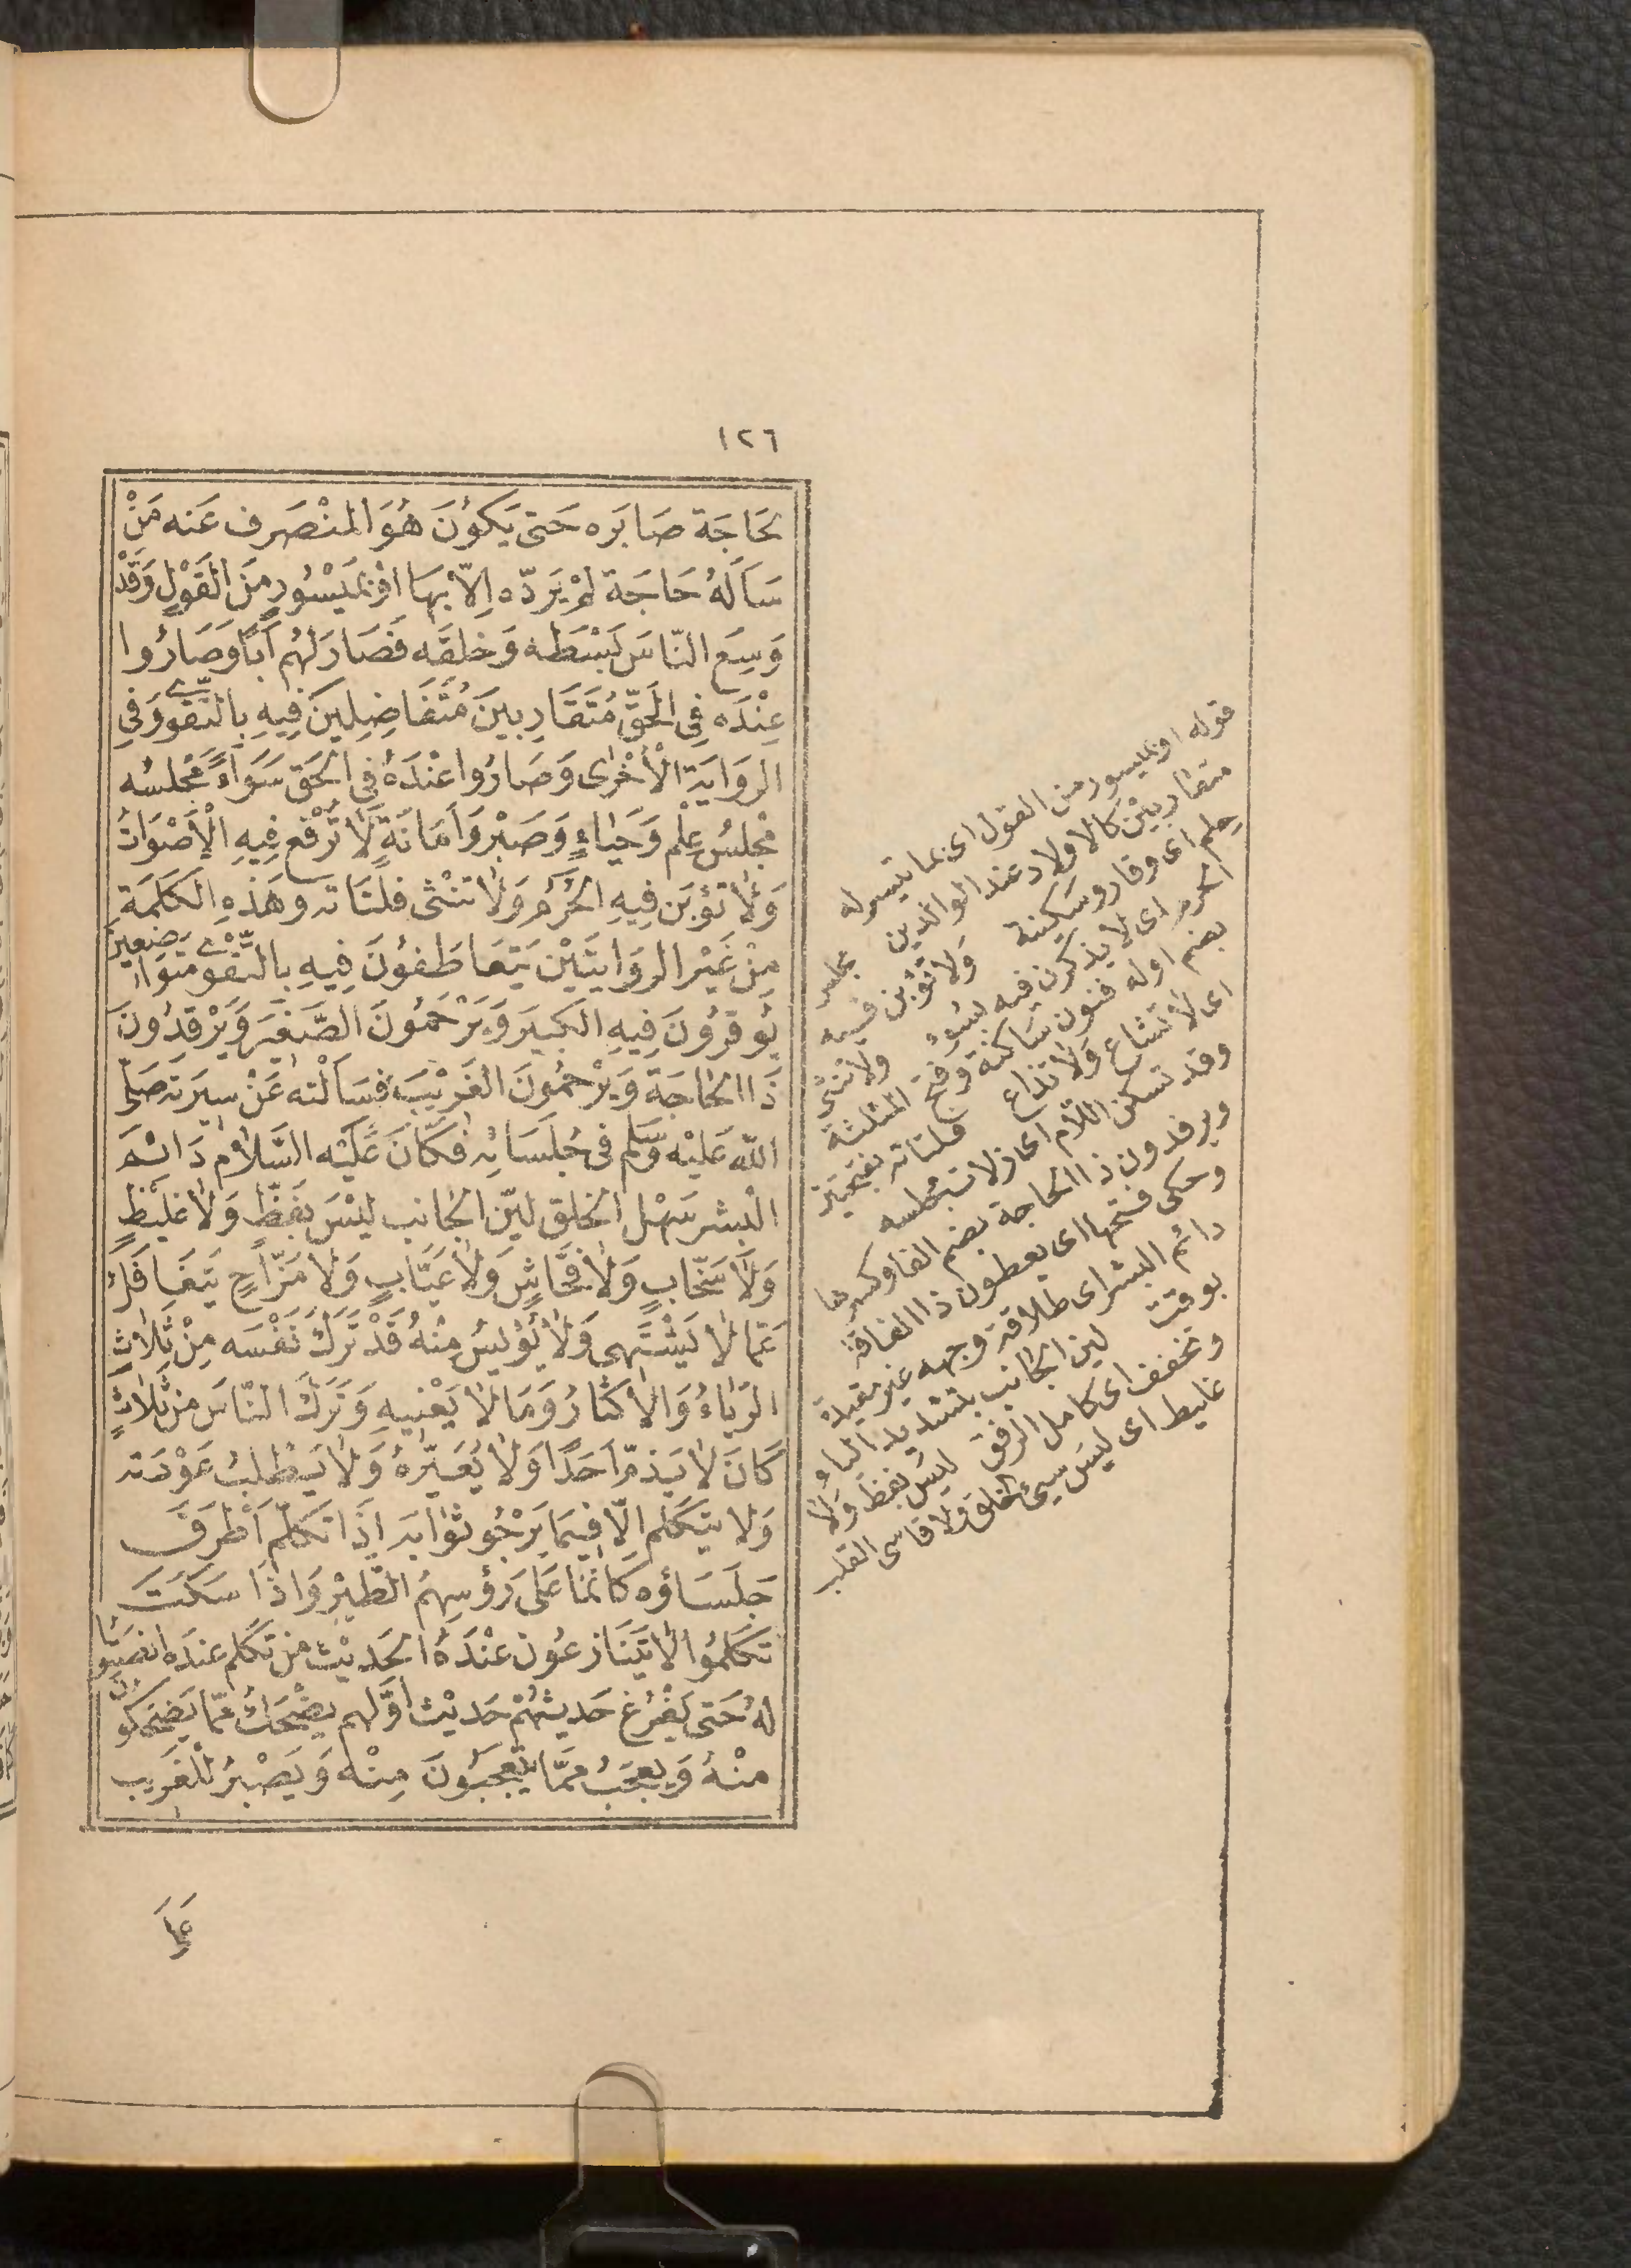 ١٢٦
لحَاجَة صَابَره حَتى يَكوُنَ هُوَ المنْصَرف عَنه مَنْ
سَألَهُ حَاجَة لمْ يَردّه اِلاّ بهَا اوْ بمَيْسُورٍ مِنَ القَوْلِ وَقَدْ
وَسِعَ النّاسَ بَسْطه وَخلقَه فَصَارَلهُم اَبًا وَصَارُوا
عِنْدَه فِى الحَقّ مُتَقَارِبينَ مُتَفَاضِلِينَ فِيهِ بِالتَّقوىٰ وَفِى
الروَايَة الْأُخْرٰى وَصَارُوا عنْدَهُ فِى الحَق سَوَاءً مَجْلسُه
مَجْلسُ عِلْم وَحَيَاءٍ وَصَبْر وَاَمَانَةٍ لَا تُرْفَع فِيهِ الْأَصْوَاتُ
وَلَا تؤبَن فِيهِ الحُرَم وَلَا تنْثى فلَتَاته وهَذهِ الكَلمَة
مِنْ غَيْر الروَايتَيْن يَتعَاطَفوُنَ فِيهِ بالتَّقْوىٰ متوَاضعِينَ
يُوقرُونَ فِيهِ الكَبيَر وَيَرْحَمُونَ الصَّغيَر وَيرْفدُونَ
ذَا الحَاجَة وَيرْحمُونَ الغَريْبَ فسَألْته عَنْ سِيرَته صَلّى
الله عَليْه وَسَلم فى جُلَسَائه فكَانَ عَلَيْه السَّلام دَائم
الْبشر سَهْل الخلق ليّن الجَانب ليْسَ بفَظّ وَلَا غلِيظٍ
وَلَا سَخّابٍ وَلَا فحَّاشٍ وَلَا عَيَّابٍ وَلَا مَزّاحٍ يَتغَافَلُ
عَمّا لَا يَشْتَهِى وَلَا يُؤيسُ مِنْهُ قَدْ تَرَكَ نَفْسَه مِنْ ثَلَاثٍ
الريَاءُ وَالْاكثَارُ وَمَا لَا يَعْنيهِ وَتَرَكَ النّاسَ مِنْ ثَلَاثٍ
كَانَ لَا يَذمّ اَحَدًا وَلَا يُعَيّرهُ وَلَا يَطْلبُ عَوْرَته
وَلَا يَتكَلم اِلّا فِيمَا يَرْجُو ثوَابه اذَا تكَلّم اَطْرَقَ
جلَسَاؤه كَاَنمَا عَلىَ رَؤسِهمُ الطّيْر وَاذَا سَكَتَ
تكَلمُوا لَا يَتَنَازعُون عنْدَهُ الحَديْث مَنْ تكَلم عندَه انصَتوا
لهُ حَتى يَفْرُغ حَديثهُمْ حَديْث اَوَّلهم يضْحَكُ ممّا يَضحَكونَ
منْهُ وَيعجَبُ ممَّا يَتعَجبَوُنَ مِنْه وَيَصْبرُ للْغَريب
عَلىَ
قوله او بميسور من القول اى بما تيسر له
متقاربيْن كالاولاد عند الوالدين مجلس
حلم اى وقار وسكينة وَلا تؤبن فيه
الحرم اى لا يذكرن فيه بسوء ولا تنثى
بضم اوله فنون ساكنة وفتح المثلثة
اى لا تشاع ولا تذاع فلتاته بفتحتين
وقد تسكن اللام اى زلات مجلسه
ويرفدون ذا الحاجة بضم الفا وكسرها
وحكى فتحها اى يعطون ذا الفاقة
دائم البشر اى طلاقة وجهه غير مقيدة
بوقت لين الجانب بتشديد الياء
وتخفف اى كامل الرفق ليس بفظ ولا
غليط اى ليس سيئ الخلق ولا قاسى القلب